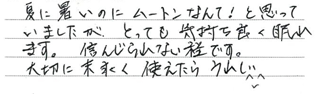 夏に暑いのに ムートンなんて！と思って
いましたが、とっても 気持ち良く眠れ
ます。信んじられない程です。
大切に末永く使えたらうれしい^^